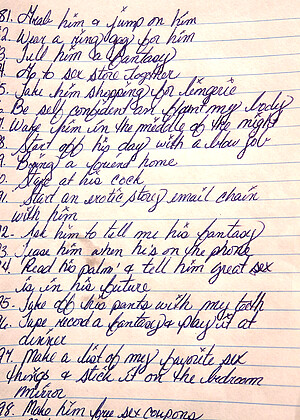 81. Grab him & jump on him
82. Wear a ring gag for him
3. Tell him a fantasy
4. Go to sex store together
5. Take him shopping for lingerie
Be self confident and flaunt my body
7. Wake him in the middle of the night
8. Start off his day with a blow job
9. Bring a friend home
0. Stare at his cock
91. Start an erotic story email chain
with him
92. Ask him to tell me his fantasy
93. Tease him when he's on the phone
94. Read his palm & tell him great sex
is in his future
95. Take off his pants with my teeth
96. Tape record a fantasy & play it at
dinner
97. Make a list of my favorite sex
things & stick it on the bedroom
mirror
98. Make him free sex coupons